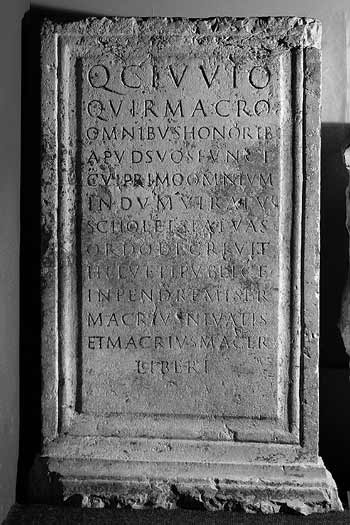 Q CLVVIO
QVIR MACRO
OMNIBVS HONORIB
APVD SVOS FVNCT
CVI PRIMO OMNIVM
IN DVMVIRATVS
SCHOL ET STATVAS
ORDO DECREVIT
HELVETI PVBLICE
INPEND REMISER
MACRIVS NIVALIS
ET MACRIVS MACER
LIBERI